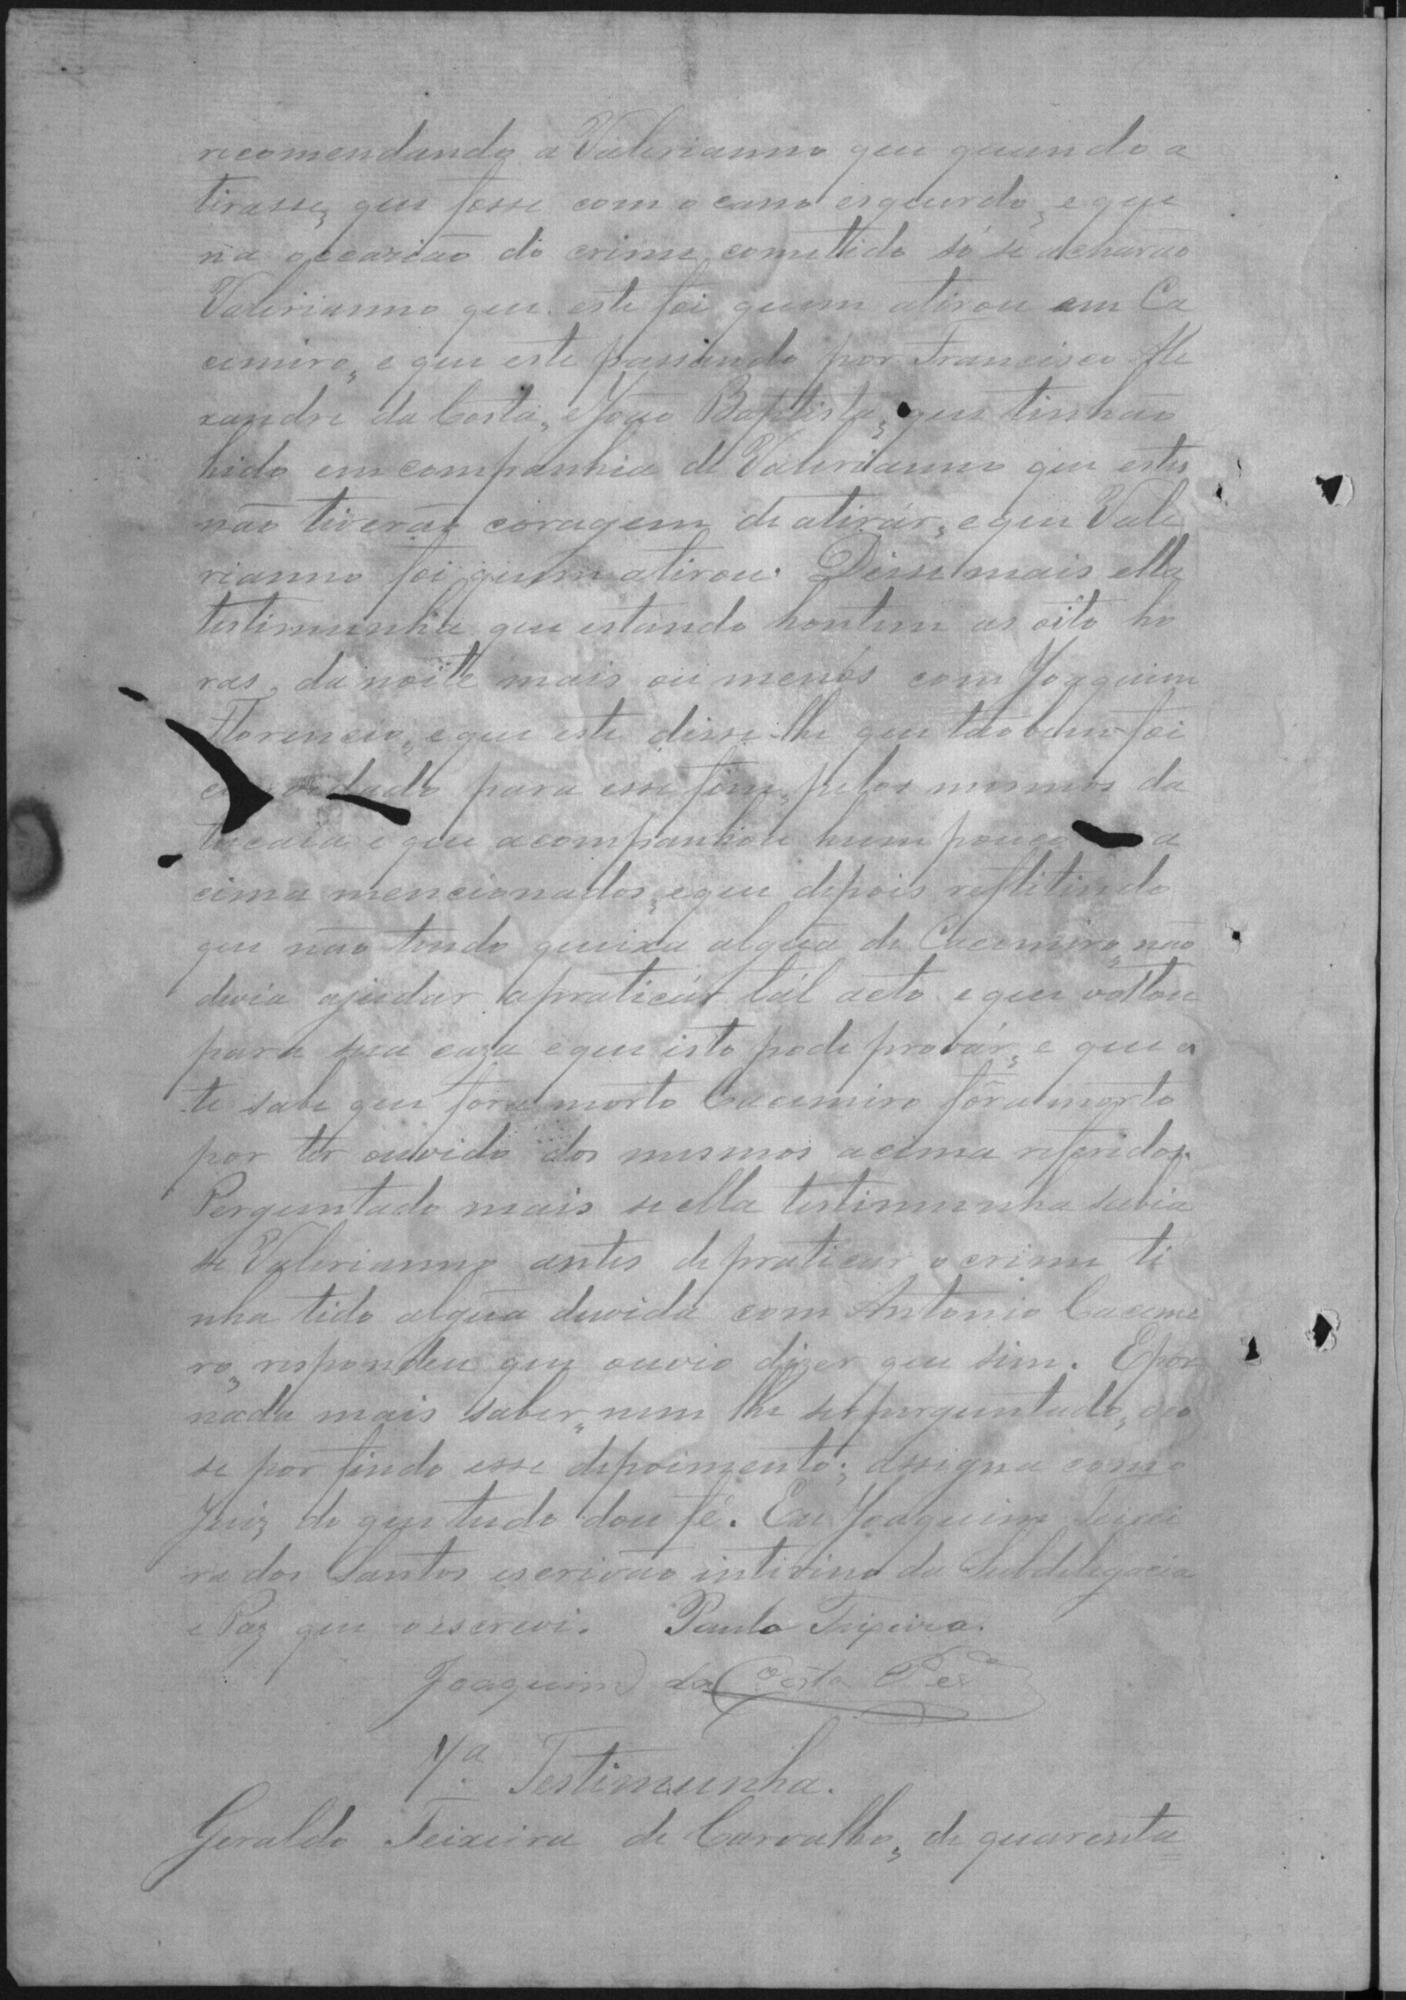 recomendando a Valerianno que quando a
tirasse, que fosse com o cano esquerdo, e que
na occazião do crime comettido só se acharão
Valerianno que este foi quem atirou em Ca
cemiro, e que este passando por Francisco Ale
xandre da Costa, e João Baptista, que tinhão
hido em companhia de Valerianno que estes
não tiverão coragem de atirár, e que Vale
rianno foi quem atirou. Disse mais ella
testimunha que estando hontem as oito ho
ras, da noite mais ou menos com Joaquim
Florencio, e que este disse-lhe que tãobem foi
convidado para esse fim, pelos mesmos da
tucaia e que acompanhou hum pouco a
cima mencionados, e que depois reflitindo
que não tendo queixa algũa de Cacemiro, não
devia ajudar a praticár tál acto e que voltou
para sua caza e que isto pode provár, e que a
te sabe que fora morto Cacemiro fôra morto
por ter ouvido dos mesmos acima referidos.
Perguntado mais se ella testimunha sabia
se Valerianno antes de praticar o crime ti
nha tido algũa duvida com Antonio Cacemi
ro, respondeu que ouvio dizer que sim. E por
nada mais saber, nem lhe ser perguntado, deo
se por findo esse depoimento; assigna com o
Juiz do que tudo dou fé. Eu Joaquim Teixei
ra dos Santos escrivão intirino da Subdelegacia
e Paz que o escrevi. Paulo Teixeira.
Joaquim da Costa
7ª Testimunha.
Geraldo Teixeira de Carvalho, de quarenta